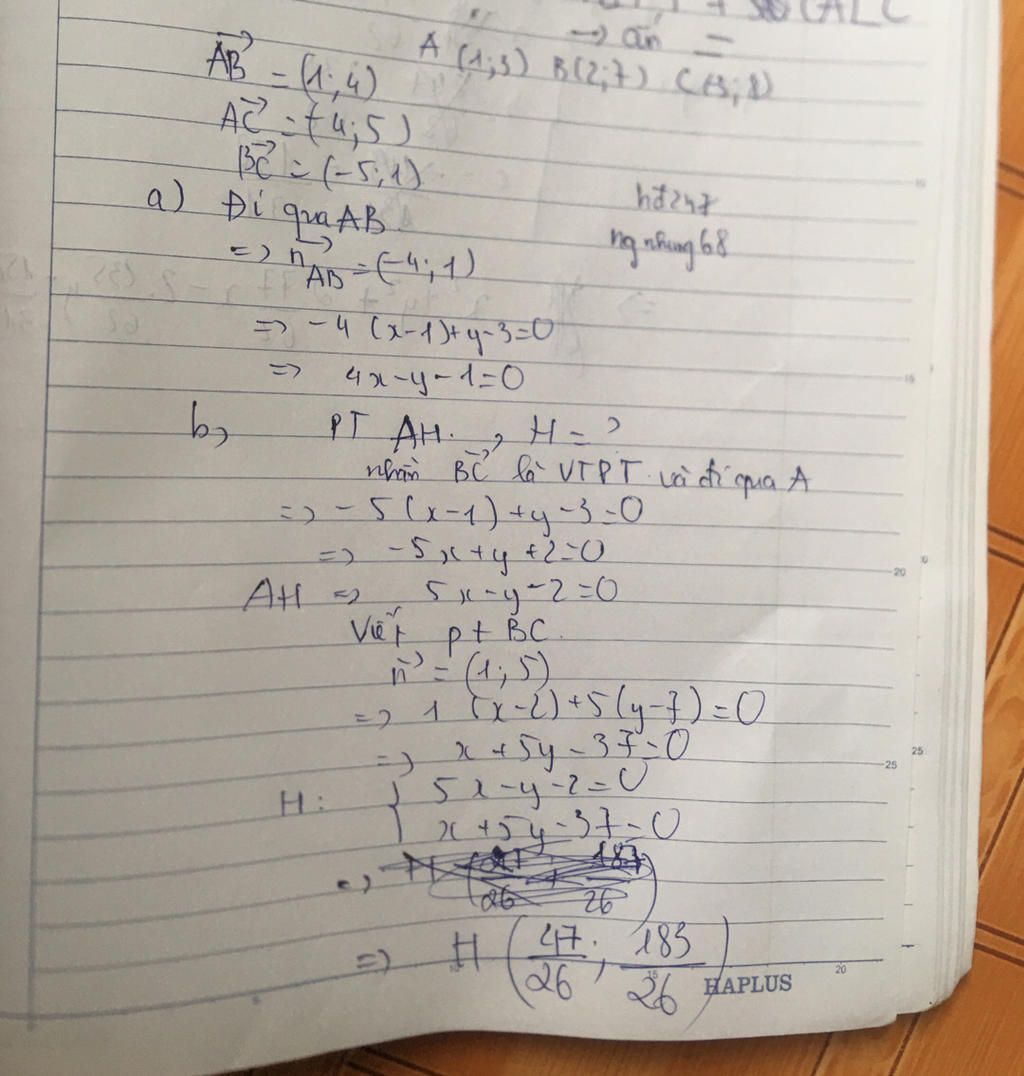 + CALC
→ ấn =
A (1;3) B(2;7) C(-3;8)
AB→ = (1;4)
AC→ = (-4;5)
BC→ = (-5;1)
hđ247
ngnhung68
a) Đi qua AB
=> n→AB = (-4;1)
=> -4 (x-1)+y-3=0
=> 4x-y-1=0
b, PT AH. , H = ?
nhận BC→ là VTPT và đi qua A
=> -5(x-1)+y-3=0
=> -5x+y+2=0
AH => 5x-y-2=0
Viết pt BC.
n→ = (1;5)
=> 1 (x-2)+5(y-7)=0
=> x+5y-37=0
H: { 5x-y-2=0
x+5y-37=0
=>
=> H (47/26; 183/26)
HAPLUS
15
20
25
25
20